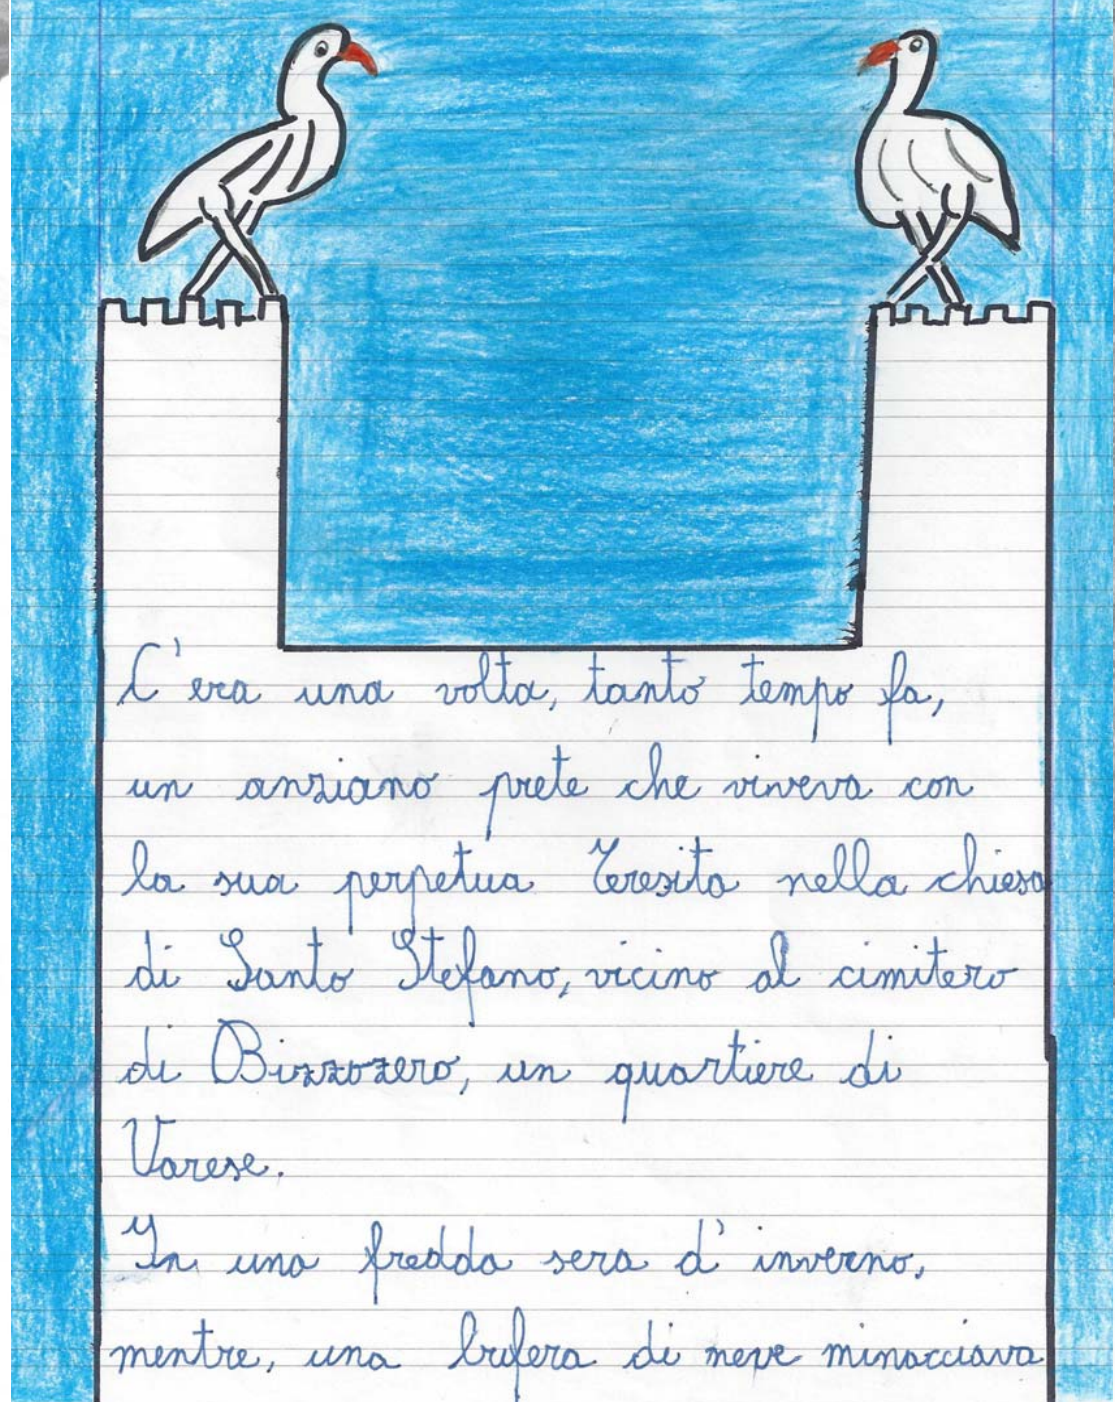 C'era una volta, tanto tempo fa,
un anziano prete che viveva con
la sua perpetua Teresita nella chiesa
di Santo Stefano, vicino al cimitero
di Bizzozero, un quartiere di
Varese.
In una fredda sera d'inverno,
mentre, una bufera di neve minacciava